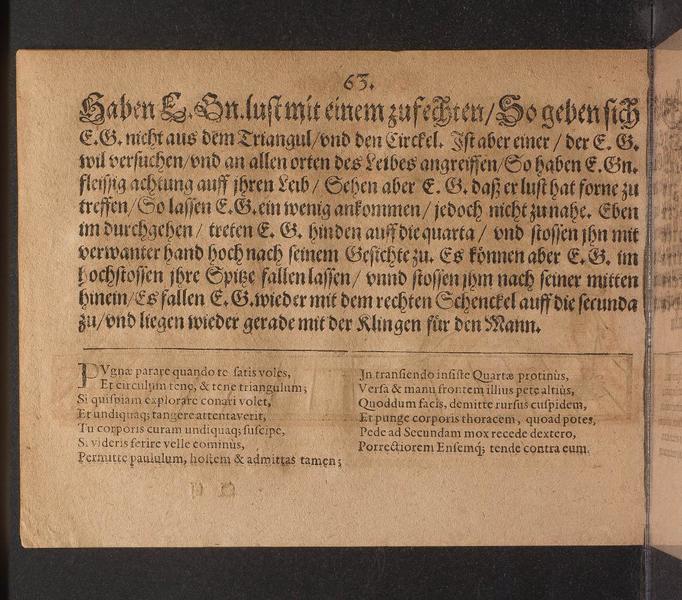 63.
Haben E. Gn. lust mit einem zu fechten/ So geben sich
E.G. nicht aus dem Triangul/ vnd den Circkel. Ist aber einer/ der E. G.
wil versuchen/ vnd an allen orten des Leibes angreiffen/ So haben E.Gn.
fleissig achtung auff jhren Leib/ Sehen aber E. G. daß er lust hat forne zu
treffen/ So lassen E.G. ein wenig ankommen/ jedoch nicht zu nahe. Eben
im durchgehen/ treten E. G. hinden auff die quarta/ vnd stossen jhn mit
verwanter hand hoch nach seinem Gesichte zu. Es können aber E. G. im
hochstossen jhre Spitze fallen lassen/ vnnd stossen jhm nach seiner mitten
hinein/ Es fallen E. G. wieder mit dem rechten Schenckel auff die secunda
zu/ vnd liegen wieder gerade mit der Klingen für den Mann.
PVgnæ parare quando te satis voles,
Et circulum tene, & tene triangulum;
Si quispiam explorare conari volet,
Et undiquaq; tangere attentaverit,
Tu corporis curam undiquaq; suscipe,
Si videris ferire velle cominùs,
Permitte paululum, hostem & admittas tamen;
In transiendo insiste Quartæ protinùs,
Versâ & manu frontem illius pete altiùs,
Quoddum facis, demitte rursus cuspidem,
Et punge corporis thoracem, quoad potes,
Pede ad Secundam mox recede dextero,
Porrectiorem Ensemq; tende contra eum.